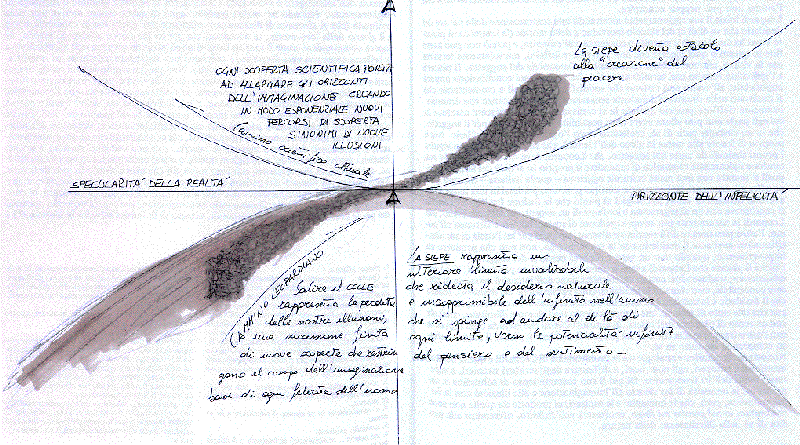 OGNI SCOPERTA SCIENTIFICA PORTA
AD ALLARGARE GLI ORIZZONTI
DELL'IMMAGINAZIONE CREANDO
IN MODO ESPONENZIALE NUOVI
PERCORSI DI SCOPERTA
SINONIMI DI
ILLUSIONI
La siepe diventa ostacolo
alla "creazione" del
piacere
SPECULARITÀ DELLA REALTÀ
ORIZZONTE DELL'INFELICITÀ
CAMMINO LEOPARDIANO
Salire il COLLE
rappresenta la perdita
delle nostre illusioni,
è una successione finita
di nuove scoperte che
gono il campo dell'immaginazione
basi di ogni felicità dell'uomo
LA SIEPE rappresenta un
interiore limite invalicabile
che ridesta il desiderio naturale
e insopprimibile dell'infinito nell'animo
che si spinge ad andare al di là di
ogni limite, verso le potenzialità infinite
del pensiero e del sentimento